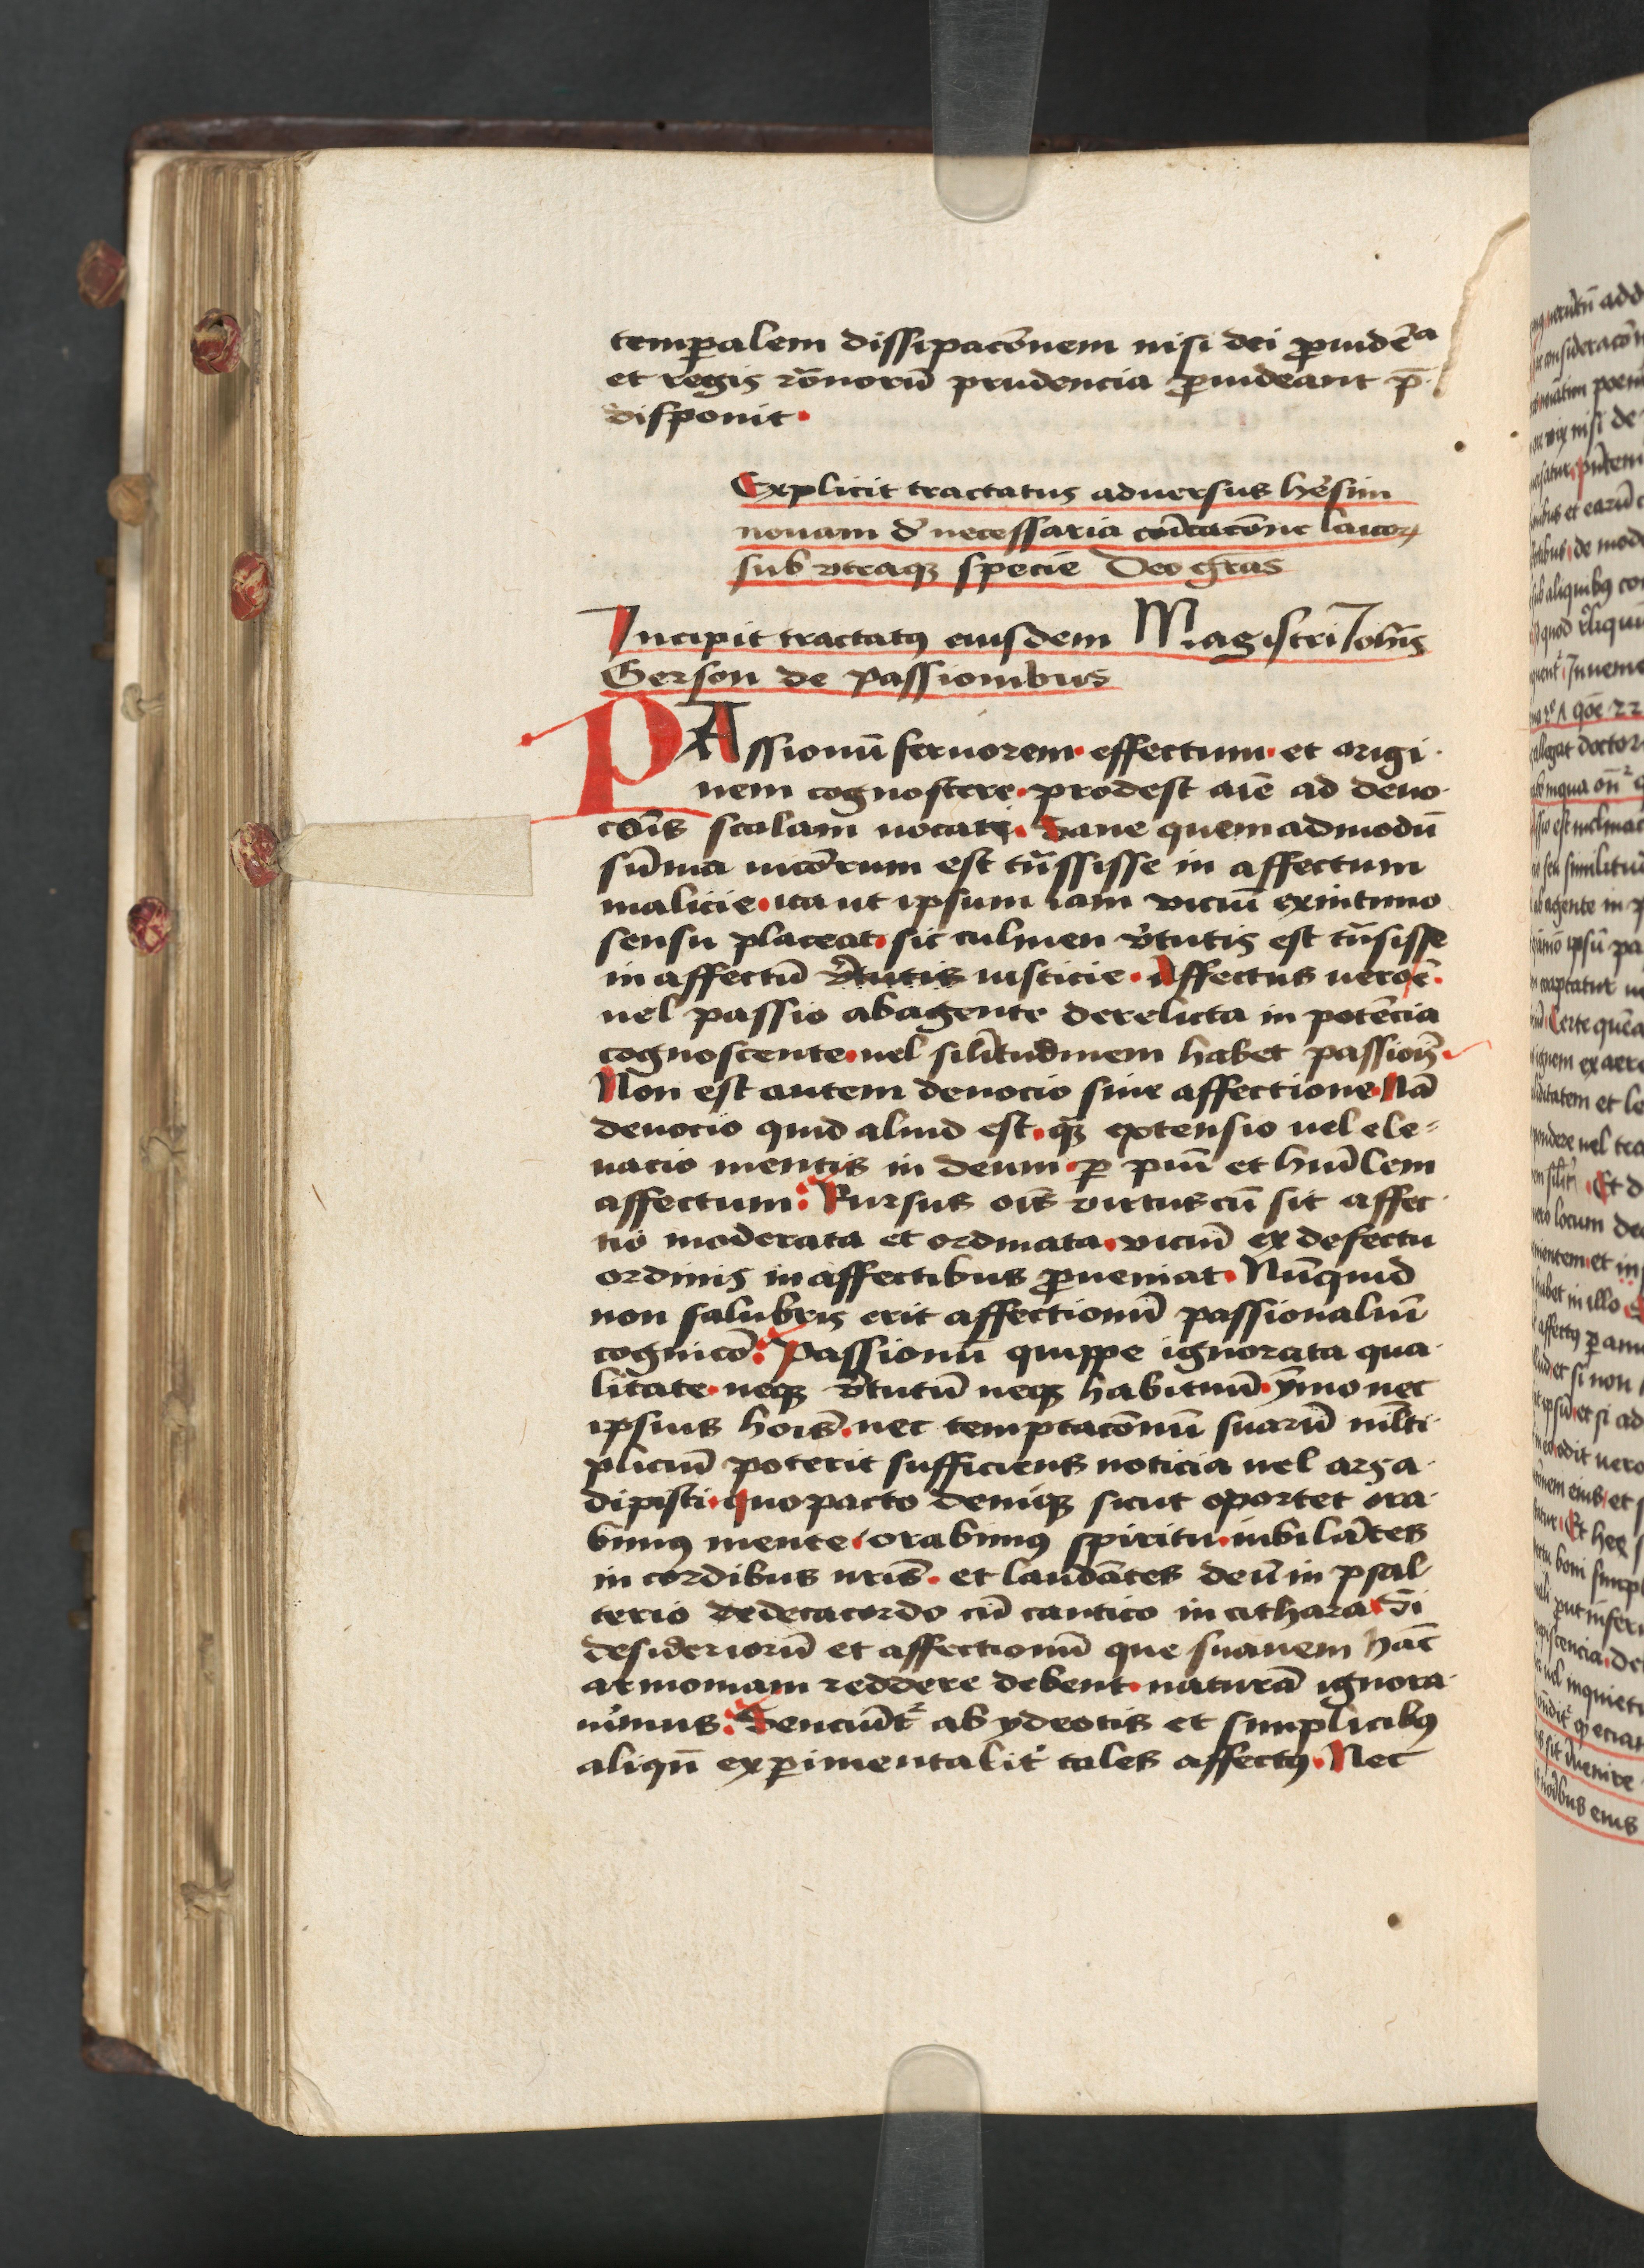 temꝑalem dissipacōnem nisi dei ꝓuidēᵃ
et regis rōmorū prudencia ꝓuideant p̄
disponit.
Explicit tractatus aduersus hēsim
nouam d̓ necessaria cōīcacōne laicoꝝ
sub vtraqꝫ specie Deo grās
Incipit tractatꝰ eiusdem Magistri Johīs
Gerson de passionibus
PAssionū feruorem· effectum· et origi·
nem cognoscere· prodest aīe ad deuo·
cōīs scalam uocate· Sane quemadmodū
sūma uicōrum est trāssisse in affectum
malicie· ita ut ipsum iam viciū ex intimo
sensu placeat· sic culmen v̓tutis est trāsisse
in affectū v̓tutis iusticie· Affectus vero ē·
uel passio ab agente derelicta in potēcia
cognoscente· uel silītudinem habet passiois̄·
Non est autem deuocio sine affectione· Nā
deuocio quid aliud est· qꝫ extensio uel ele-
uacio mentis in deum· ꝑ piū et humīlem
affectum: Rursus oīs virtus cū sit affec·
tio moderata et ordinata· viciū ex defectu
ordinis in affectibus ꝓueniat· Nūnquid
non salubris erit affectionū passionaliū
cognicō: Passionū quippe ignorata qua·
litate· neqꝫ v̓tutū neqꝫ habituū· ȳmo nec
ipsius hoīs· nec temptacōnū suarū mlti·
pliciū poterit sufficiens noticia uel ars a·
dipisci· quo pacto deniqꝫ sicut oportet ora·
bimꝰ mente· orabimꝰ spiritu· iubilātes
in cordibus nrīs· et laudātes deū in psal
terio dedecacordo cū cantico in cithara· Si
desideriorū et affectionū que suauem hāc
armoniam reddere debent· naturā ignora·
uimus: Senciūtᷣ ab ydeotis et simplicibꝰ
aliqn̄ exꝑimentalit̓ tales affectꝰ· Nec